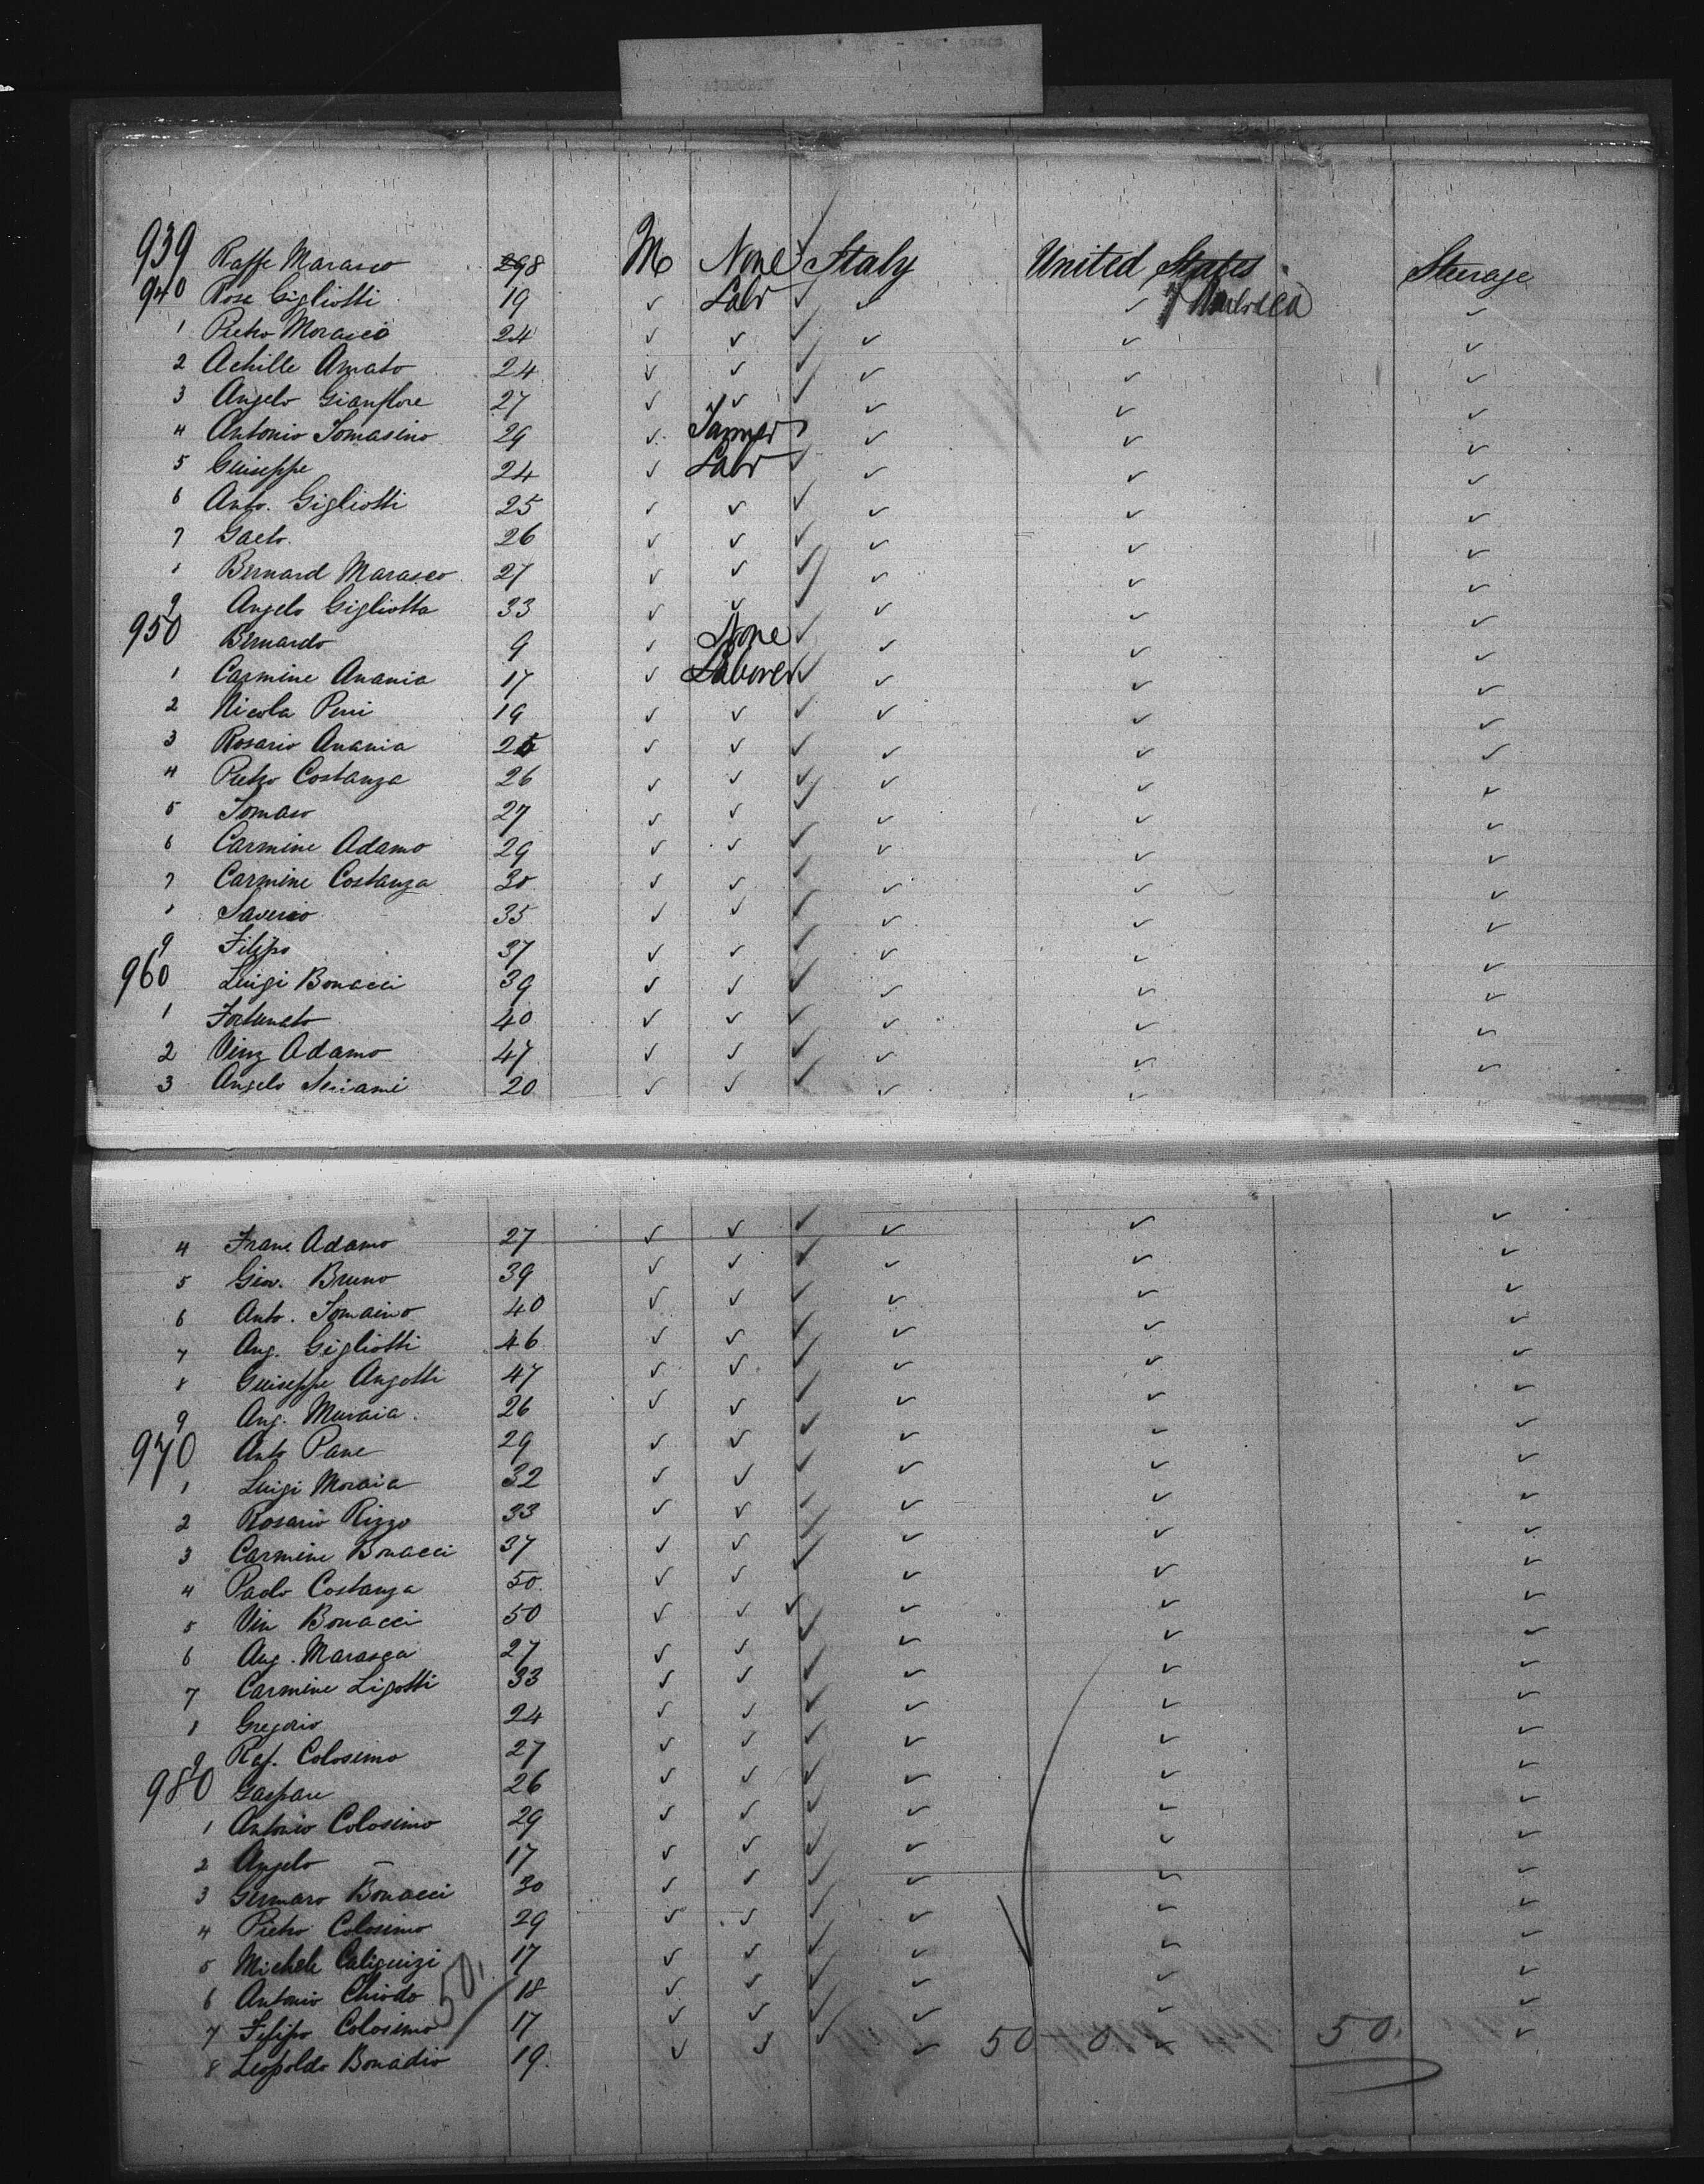 939 Raffe Marasco 298 M None ✓ Italy United States Steerage
940 Rosa Gigliotti 19 ✓ Labr ✓ ✓ ✓ ✓
1 Pietro Morasco 24 ✓ ✓ ✓ ✓ ✓ ✓
2 Achille Amato 24 ✓ ✓ ✓ ✓ ✓ ✓
3 Angelo Gianflore 27 ✓ ✓ ✓ ✓ ✓ ✓
4 Antonio Tomasino 29 ✓ ✓ ✓ ✓
5 Guiseppe 24 ✓ Labr ✓ ✓ ✓ ✓
6 Anto. Gigliotti 25 ✓ ✓ ✓ ✓ ✓ ✓
7 Gaeto. 26 ✓ ✓ ✓ ✓ ✓ ✓
8 Bernard Marasco 27 ✓ ✓ ✓ ✓ ✓ ✓
9 Angelo Gigliotta 33 ✓ ✓ ✓ ✓ ✓ ✓
950 Bernardo 9 ✓ None ✓ ✓ ✓ ✓
1 Carmine Anania 17 ✓ Laborer ✓ ✓ ✓ ✓
2 Nicola Perri 19 ✓ ✓ ✓ ✓ ✓ ✓
3 Rosario Anania ✓ ✓ ✓ ✓ ✓ ✓
4 Pietro Costanza 26 ✓ ✓ ✓ ✓ ✓ ✓
5 Tomaso 27 ✓ ✓ ✓ ✓ ✓ ✓
6 Carmine Adamo 29 ✓ ✓ ✓ ✓ ✓ ✓
7 Carmine Costanza 30 ✓ ✓ ✓ ✓ ✓ ✓
8 Saverio 35 ✓ ✓ ✓ ✓ ✓ ✓
9 Filipo 37 ✓ ✓ ✓ ✓ ✓ ✓
960 Luigi Bonacci 39 ✓ ✓ ✓ ✓ ✓ ✓
1 Fortunato 40 ✓ ✓ ✓ ✓ ✓ ✓
2 Vinz Adamo 47 ✓ ✓ ✓ ✓ ✓ ✓
3 Angelo 20 ✓ ✓ ✓ ✓ ✓
4 Franc Adamo 27 ✓ ✓ ✓ ✓ ✓ ✓
5 Giov. Bruno 39 ✓ ✓ ✓ ✓ ✓ ✓
6 Anto. Tomaino 40 ✓ ✓ ✓ ✓ ✓ ✓
7 Ang. Gigliotti 46 ✓ ✓ ✓ ✓ ✓ ✓
8 Guiseppe Angotti 47 ✓ ✓ ✓ ✓ ✓ ✓
9 Ang. Muraia. 26 ✓ ✓ ✓ ✓ ✓ ✓
970 Anto Pane 29 ✓ ✓ ✓ ✓ ✓ ✓
1 Luigi Moraia 32 ✓ ✓ ✓ ✓ ✓ ✓
2 Rosario Rizzo 33 ✓ ✓ ✓ ✓ ✓ ✓
3 Carmine Bonacci 37 ✓ ✓ ✓ ✓ ✓ ✓
4 Paolo Costanza 50 ✓ ✓ ✓ ✓ ✓ ✓
5 Vin Bonacci 50 ✓ ✓ ✓ ✓ ✓ ✓
6 Ang. Marasca 27 ✓ ✓ ✓ ✓ ✓ ✓
7 Carmine Ligotti 33 ✓ ✓ ✓ ✓ ✓ ✓
8 Gregorio 24 ✓ ✓ ✓ ✓ ✓ ✓
9 Raf. Colosimo 27 ✓ ✓ ✓ ✓ ✓ ✓
980 Gaspare 26 ✓ ✓ ✓ ✓ ✓ ✓
1 Antonio Colosimo 29 ✓ ✓ ✓ ✓ ✓ ✓
2 Angelo 17 ✓ ✓ ✓ ✓ ✓ ✓
3 Gennaro Bonacci 30 ✓ ✓ ✓ ✓ ✓ ✓
4 Pietro Colosimo 29 ✓ ✓ ✓ ✓ ✓ ✓
5 Michele 17 ✓ ✓ ✓ ✓ ✓ ✓
6 Antonio Chiodo 50, 18 ✓ ✓ ✓ ✓ ✓ ✓
7 Filipo Colosimo 17 ✓ ✓ ✓ ✓ ✓ ✓
8 Leopoldo Bonadio 19. ✓ ✓ ✓ ✓ 50 0 ✓ 50. ✓